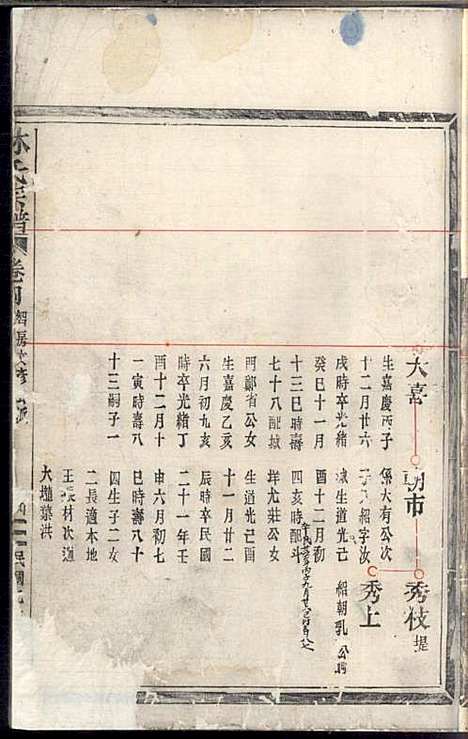 大喜
生嘉慶丙子
十二月廿六
戌時卒光緒
癸巳十一月
十三巳時壽
七十八配城
門鄭省公女
生嘉慶乙亥
六月初九亥
時卒光緒丁
酉十二月十
一寅時壽八
十三嗣子一
朝市
係大有公次
子 紹字汝
生道光己
酉十二月初
四亥時配斗
垟尤莊公女
生道光己酉
十一月廿二
辰時卒民國
二十一年壬
申六月初七
巳時壽八十
四生子二女
二長適本地
王 材次適
大 葉洪
秀枝
秀上
紹朝乳 公
林氏宗譜
卷
民國